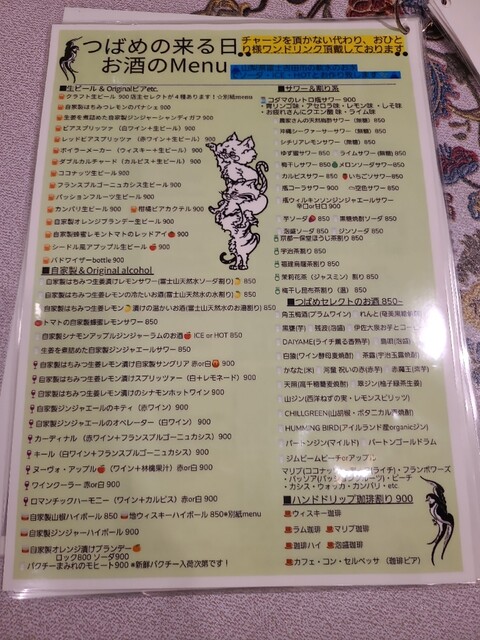 つばめの来る日
お酒のMenu
チャージを頂かない代わり、おひとり様ワンドリンク頂戴しております
■生ビール＆Originalビアetc.
クラフト生ビール 900 店主セレクトが４種あります！☆別紙menu
自家製はちみつレモンのパナシェ 900
生姜を煮詰めた自家製ジンジャーシャンディガフ 900
ビアスプリッツァ（白ワイン＋生ビール）900
レッドビアスプリッツァ（赤ワイン＋生ビール）900
ボイラーメーカー（ウィスキー＋生ビール）900
ダブルカルチャード（カルピス＋生ビール）900
ココナッツ生ビール 900
フランスブルゴーニュカシス生ビール 900
パッションフルーツ生ビール 900
カンパリ生ビール 900 柑橘ビアカクテル 900
自家製オレンジブランデー生ビール 900
自家製蜂蜜レモントマトのレッドアイ 900
シードル風アップル生ビール 900
バドワイザーbottle 900
■自家製＆Original alcohol
自家製はちみつ生姜漬けレモンサワー(富士山天然水ソーダ割り) 850
自家製はちみつ生姜レモンの冷たいお酒(富士山天然水の水割り) 850
自家製はちみつ生姜レモン漬けの温かいお酒(富士山天然水のお湯割り) 850
トマトの自家製蜂蜜レモンサワー 850
自家製シナモンアップルジンジャーラムのお酒 ICE or HOT 850
生姜を煮詰めた自家製ジンジャエールサワー 850
自家製はちみつ生姜レモン漬け自家製サングリア 赤or白 900
自家製はちみつ生姜レモン漬けスプリッツァー（白＋レモネード）900
自家製はちみつ生姜レモン漬けのシナモンホットワイン 900
自家製ジンジャエールのキティ（赤ワイン）900
自家製ジンジャエールのオペレーター（白ワイン）900
カーディナル（赤ワイン＋フランスブルゴーニュカシス）900
キール（白ワイン＋フランスブルゴーニュカシス）900
ヌーヴォ・アップル（ワイン＋林檎果汁）赤or白 900
ワインクーラー 赤or白 900
ロマンチックハーモニー（ワイン＋カルピス）赤or白 900
自家製山椒ハイボール 850 地ウィスキーハイボール 850※別紙menu
自家製ジンジャーハイボール 900
自家製オレンジ漬けブランデー
ロック800 ソーダ900
パクチーまみれのモヒート900 ※新鮮パクチー入荷次第です！
■サワー＆割り系
コダマのレトロ瓶サワー 900
・青リンゴ＆梅・アセロラ味・レモン味・しそ味
・お疲れさんにクエン酸味・ライム味
農家さんの天然梅酢サワー（無糖）850
沖縄シークァーサーサワー（無糖）850
シチリアレモンサワー（無糖）850
ゆず蜜サワー 850 ライムサワー(無糖) 850
梅干しサワー 850 メロンソーダサワー850
カルピスサワー 850 いちごソーサワー850
瓶コーラサワー 900 空色サワー 850
瓶ウィルキンソンジンジャエールサワー
辛口or甘口 900
芋ソーダ 850 黒糖焼酎ソーダ 850
泡盛ソーダ 850 ジンソーダ 850
京都一保堂ほうじ茶割り 850
宇治茶割り 850
福建烏龍茶割り 850
茉莉花茶（ジャスミン）割り 850
梅干し昆布茶割り（温）850
■つばめセレクトのお酒 850~
DAIYAME(ライチ薫る香熟芋)
白狼(ワイン酵母麦焼酎)
かなた(米)
山ジン(西洋ねずの実・レモンスピリッツ)
CHILLGREEN(山胡椒・ボタニカル香焼酎)
HUMMING BIRD(アイルランド産organicジン)
バートンジン(マイルド) バートンゴールドラム
ジムビームピーチorアップル
マリブ(ココナッツ
・カシス・ウォッカ・カンパリ・etc.
■ハンドドリップ珈琲割り 900
ウィスキー珈琲
ラム珈琲 マリブ珈琲
珈琲ハイ 泡盛珈琲
カフェ・コン・セルベッサ（珈琲ビア）